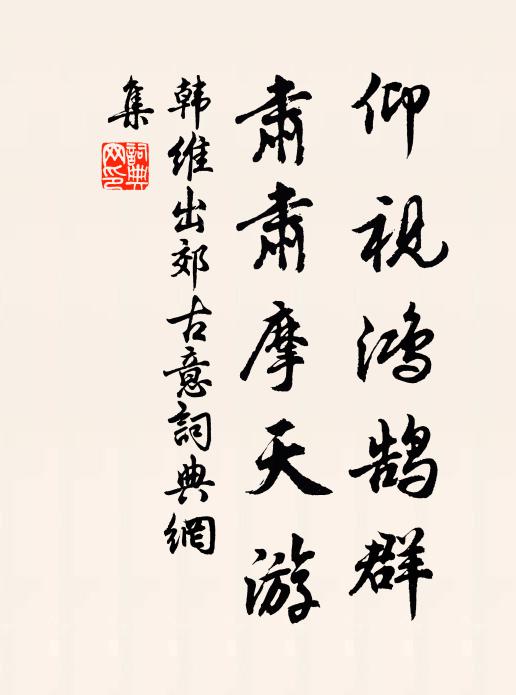 仰视鸿鹄群
肃肃摩天游
韩维出郊古意詞典網
集
詞典網印